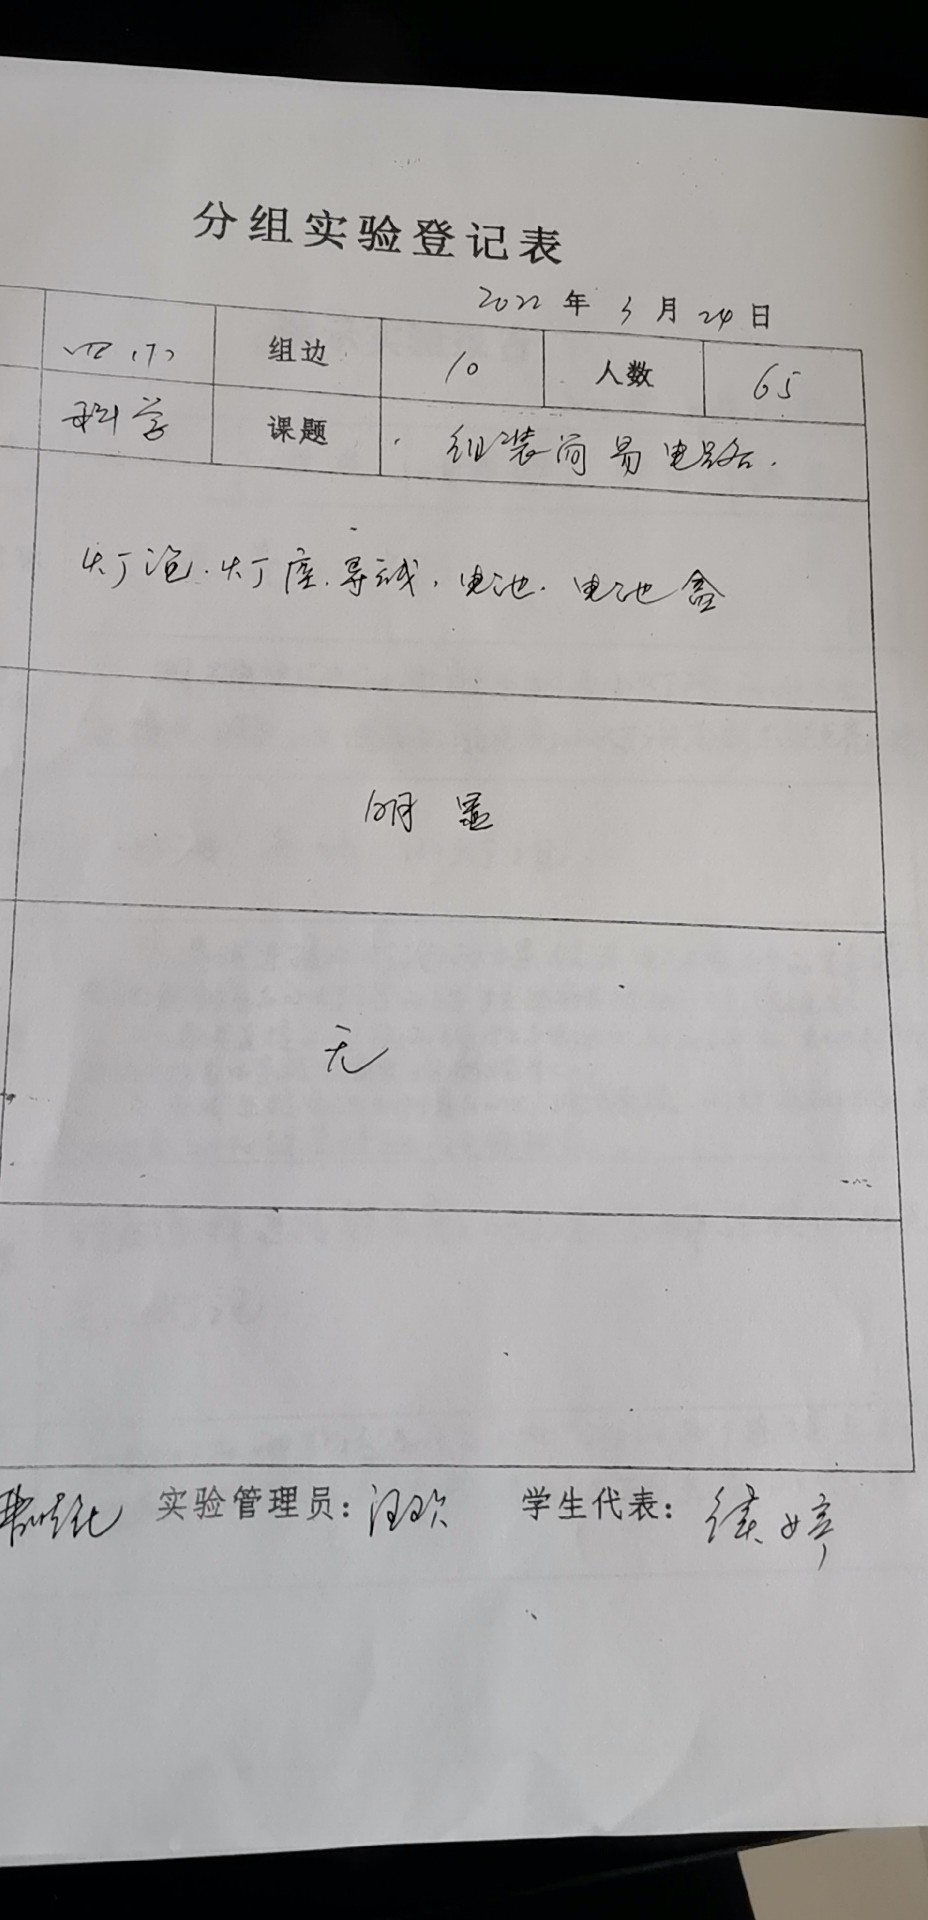 分组实验登记表
2022年3月24日
四(7) 组边 10 人数 65
科学 课题 组装简易电路.
灯泡.灯座.导线,电池.电池盒
明显
无
实验管理员:汪欢 学生代表: 婷